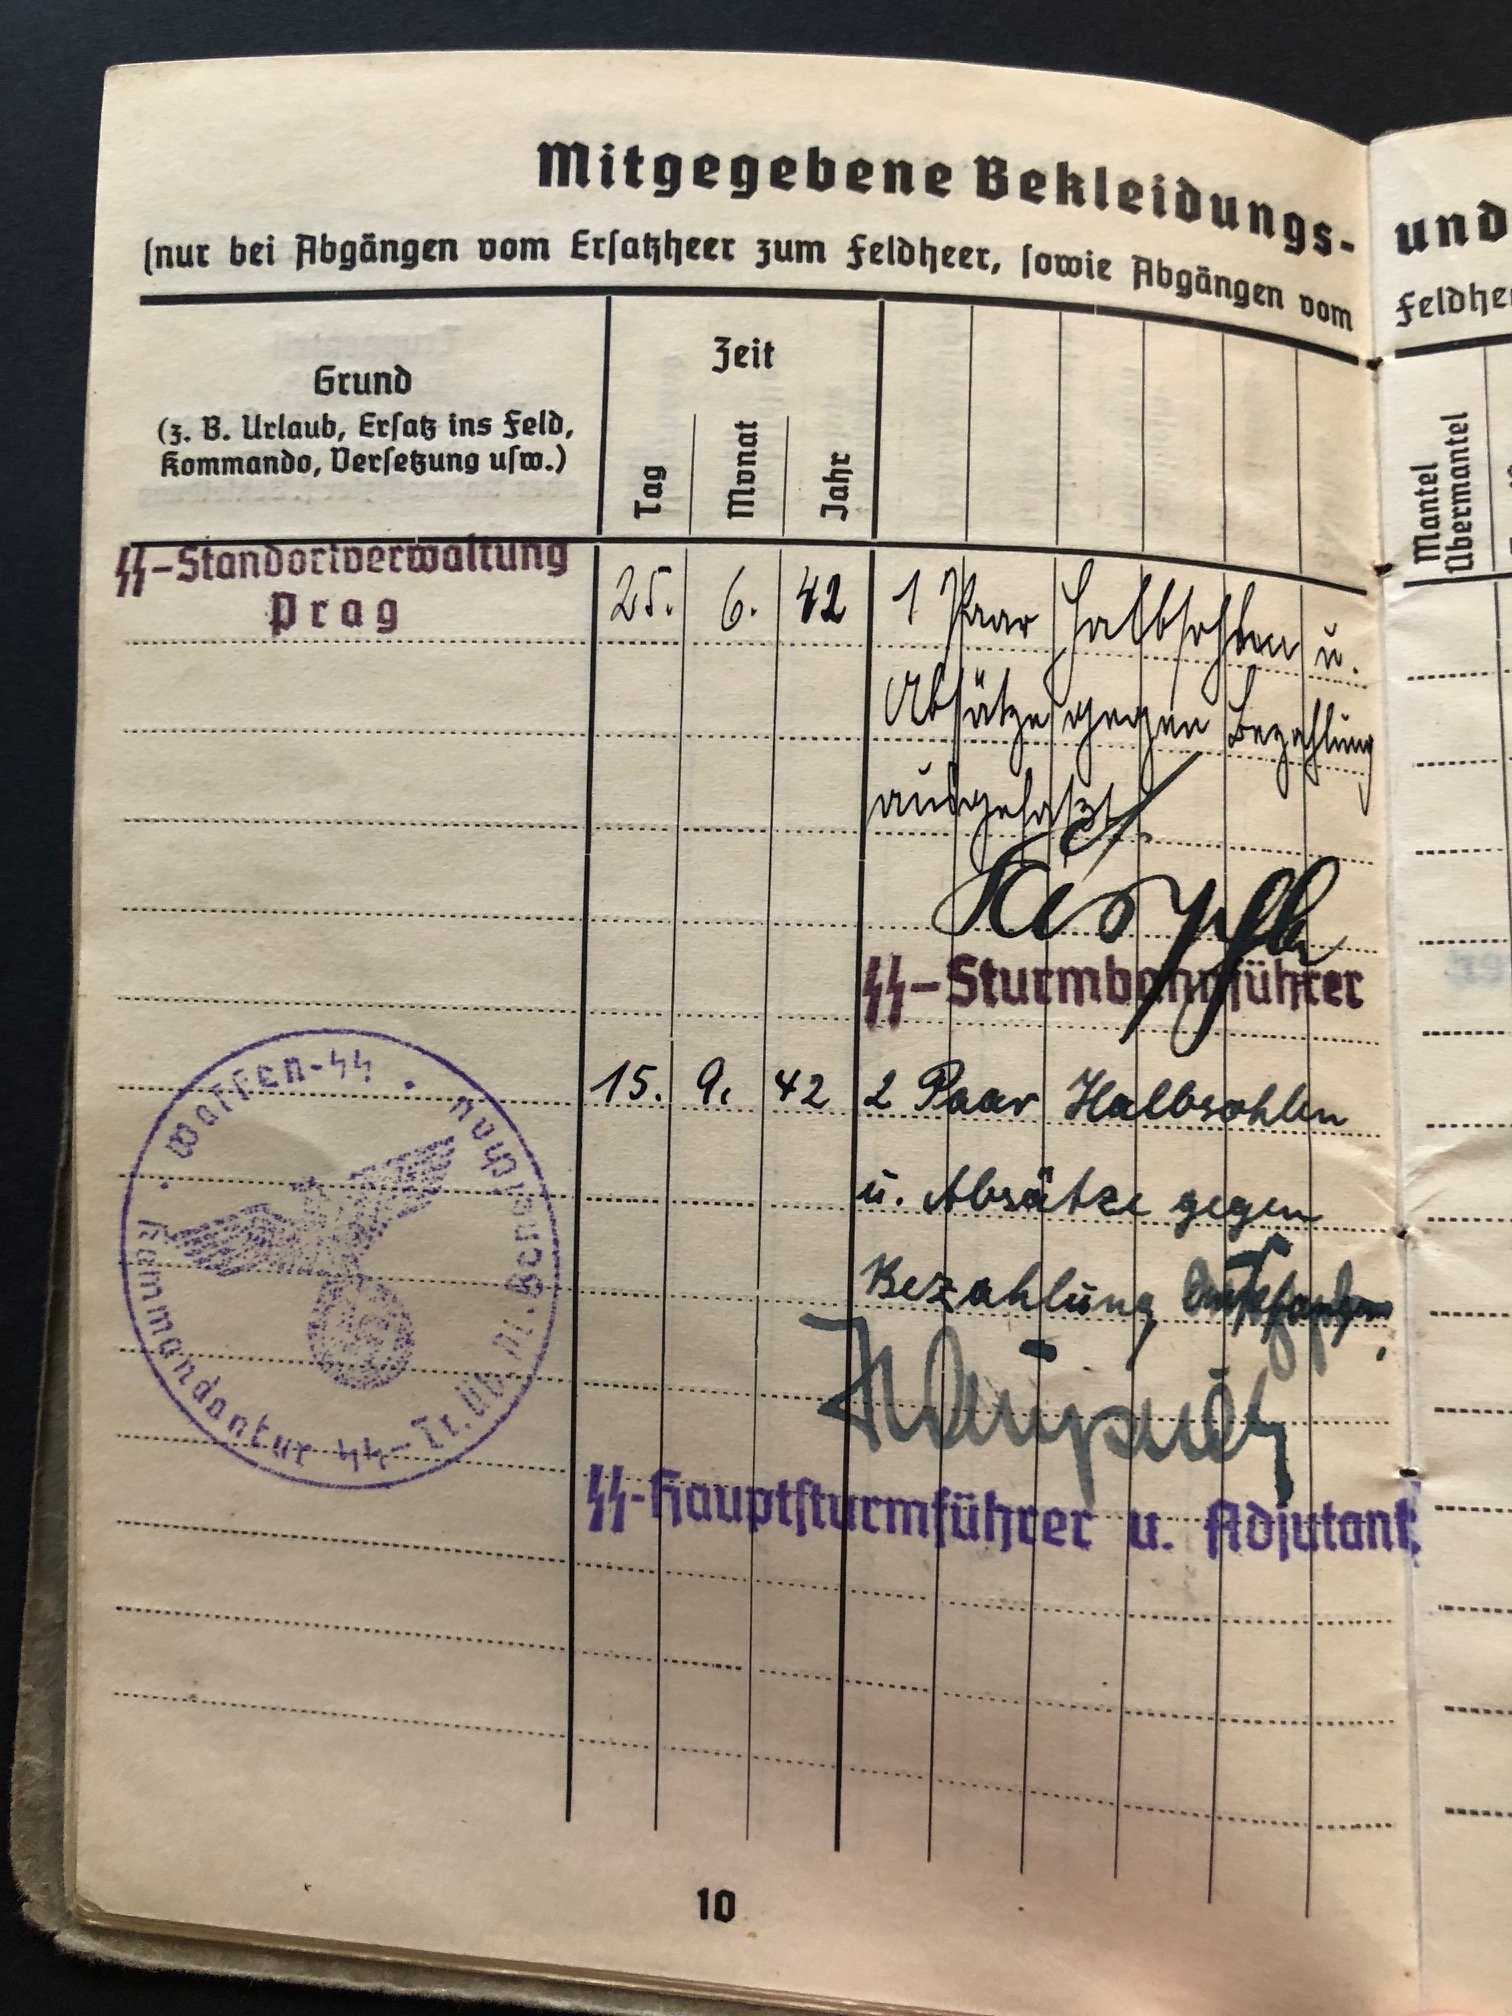 Mitgegebene Bekleidungs-
(nur bei Abgängen vom Ersatzheer zum Feldheer, sowie Abgängen vom
Grund
(z. B. Urlaub, Ersatz ins Feld,
Kommando, Versetzung usw.)
Zeit
Tag
Monat
Jahr
SS-Standortverwaltung
Prag
25. 6. 42 1 Paar Halbsohlen u.
Absätze gegen Bezahlung
ausgefaßt.
SS-Sturmbannführer
15. 9. 42 2 Paar Halbsohlen
u. Absätze gegen
Bezahlung
Waffen-SS
Kommandantur SS-Tr.Üb.Pl. Beneschau
SS-Hauptsturmführer u. Adjutant.
10
und
Feldhee
Mantel
Übermantel